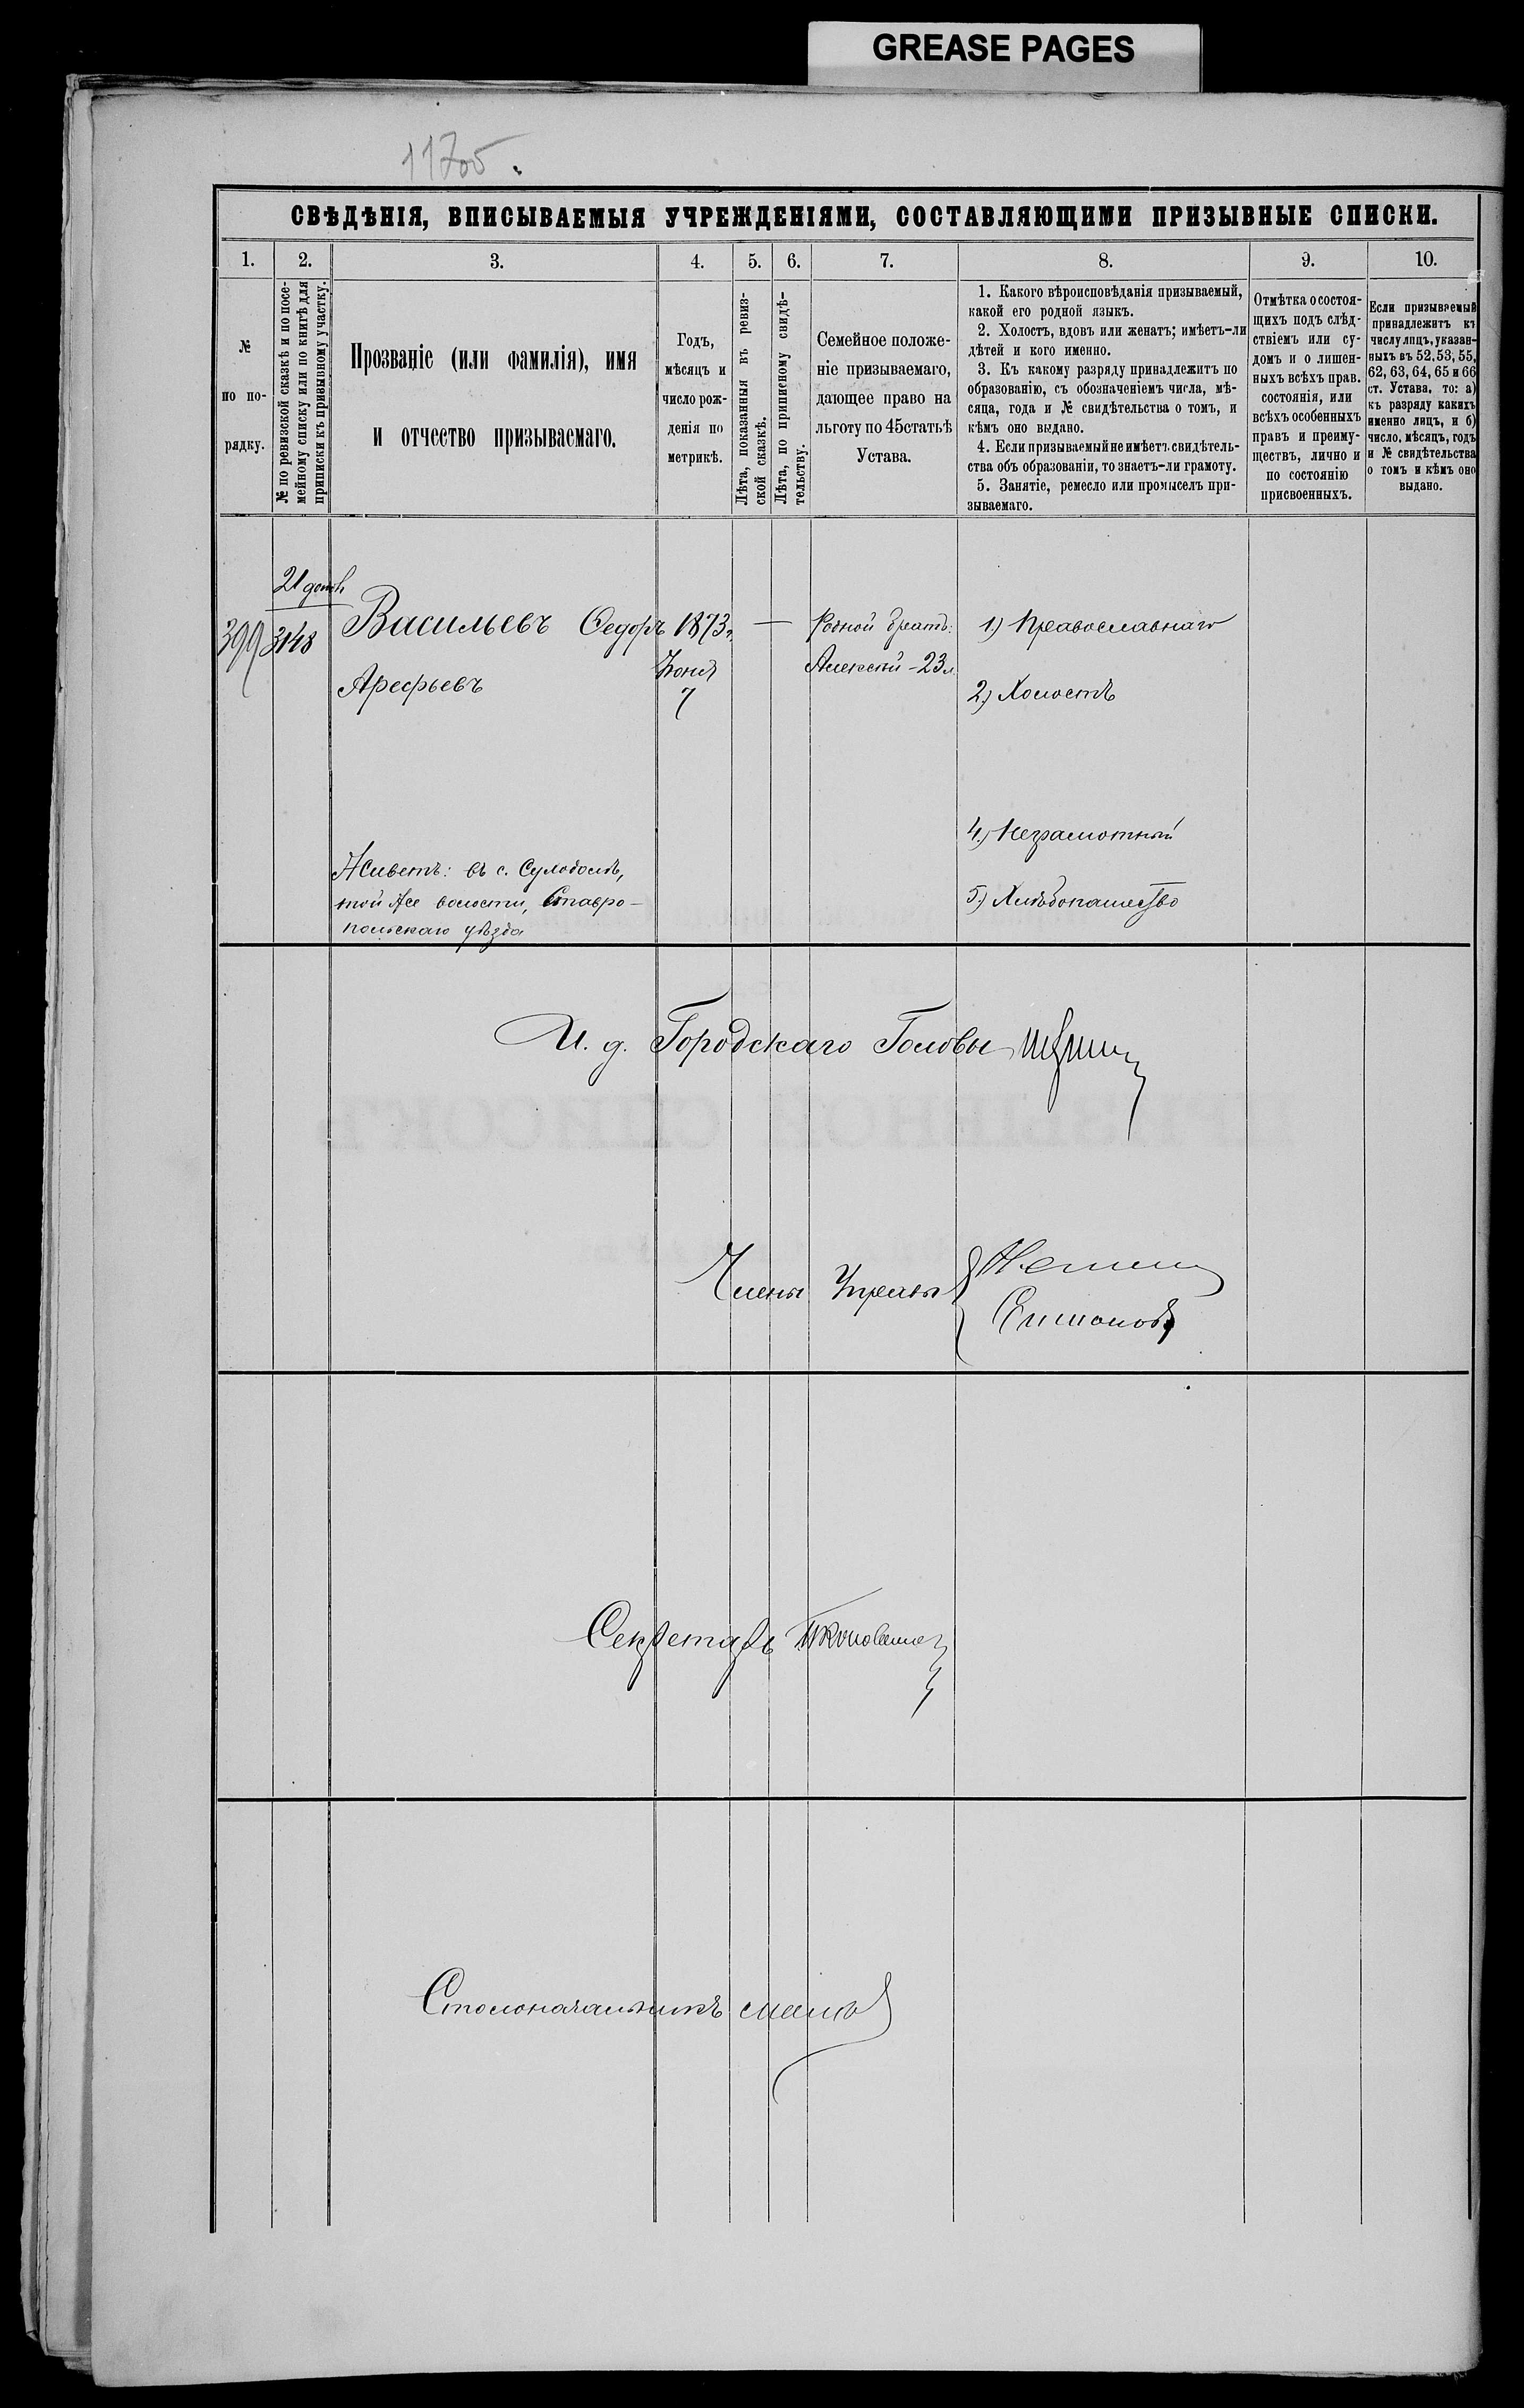 GREASE PAGES
11705.
СВѢДѢНІЯ, ВПИСЫВАЕМЫЯ УЧРЕЖДЕНІЯМИ, СОСТАВЛЯЮЩИМИ ПРИЗЫВНЫЕ СПИСКИ.
1. 2. 3. 4. 5. 6. 7. 8. 9. 10.
№
по по-
рядку.
№ по ревизской сказкѣ и по посе-
мейному списку или по книгѣ для
приписки къ призывному участку.
Прозваніе (или фамилія), имя
и отчество призываемаго.
Годъ,
мѣсяцъ и
число рож-
денія по
метрикѣ.
Лѣта, показанныя въ ревиз-
ской сказкѣ.
Лѣта, по приписному свидѣ-
тельству.
Семейное положе-
ніе призываемаго,
дающее право на
льготу по 45 статьѣ
Устава.
1. Какого вѣроисповѣданія призываемый,
какой его родной языкъ.
2. Холостъ, вдовъ или женатъ; имѣетъ-ли
дѣтей и кого именно.
3. Къ какому разряду принадлежитъ по
образованію, съ обозначеніемъ числа, мѣ-
сяца, года и № свидѣтельства о томъ, и
кѣмъ оно выдано.
4. Если призываемый не имѣетъ свидѣтель-
ства объ образованіи, то знаетъ-ли грамоту.
5. Занятіе, ремесло или промыселъ при-
зываемаго.
Отмѣтка о состоя-
щихъ подъ слѣд-
ствіемъ или су-
домъ и о лишен-
ныхъ всѣхъ прав.
состоянія, или
всѣхъ особенныхъ
правъ и преиму-
ществъ, лично и
по состоянію
присвоенныхъ.
Если призываемый
принадлежитъ къ
числу лицъ, указан-
ныхъ въ 52, 53, 55,
62, 63, 64, 65 и 66
ст. Устава. то: а)
къ разряду какихъ
именно лицъ, и б)
число, мѣсяцъ, годъ
и № свидѣтельства
о томъ и кѣмъ оно
выдано.
21
399 3148 Васильевъ Ѳедоръ 1873г. — Родной братъ: 1.) Православнаго
Арефьевъ Іюня Алексѣй - 23л.
7
2.) Холостъ
4.) Неграмотный
Живетъ: въ с.
той же волости, Ставро-
польскаго уѣзда
5.) Хлѣбопашество
И. д. Городскаго Головы
Члены Управы
Секретарь
Столоначальникъ